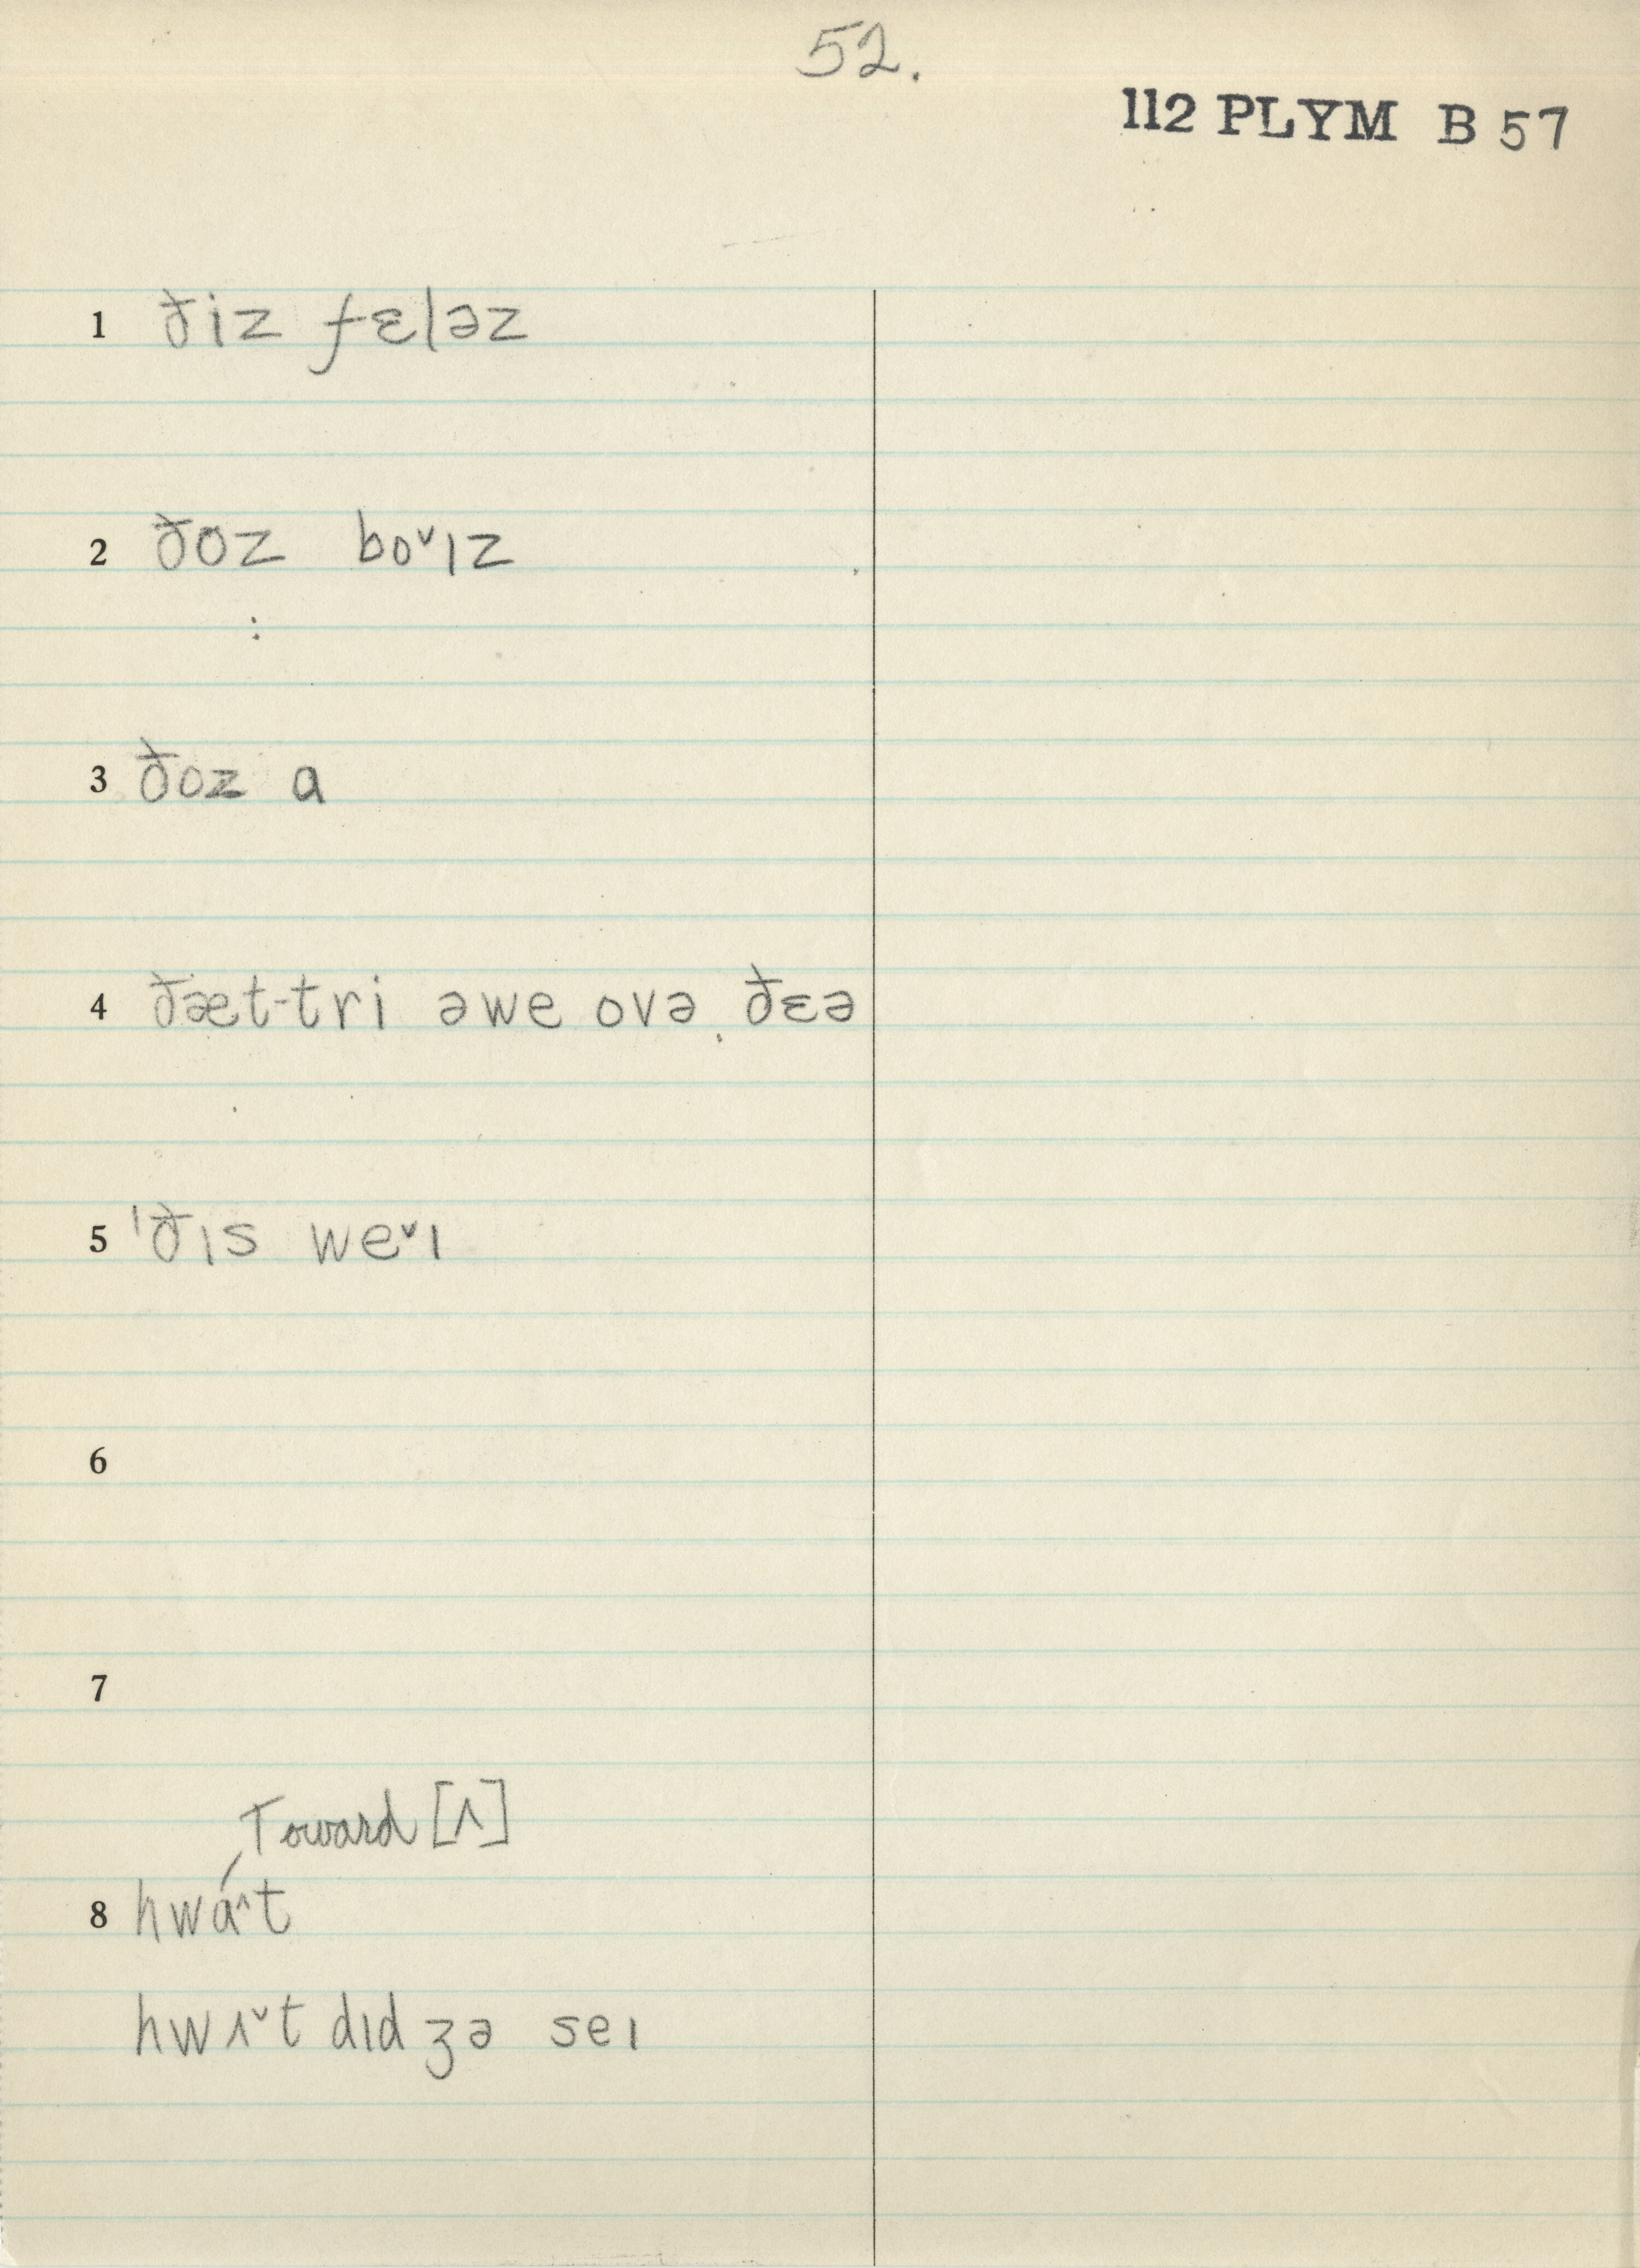 52.
112 PLYM B 57
1 ðiz fɛləz
2 ðoz boˇɪz
3 ðoz a
4 ðæt-tri əwe ovə ðɛə
5 ˈðɪs weˇɪ
6
7
Toward [ʌ]
8 hwɑ^t
hwʌˇt dɪd ʒə seɪ